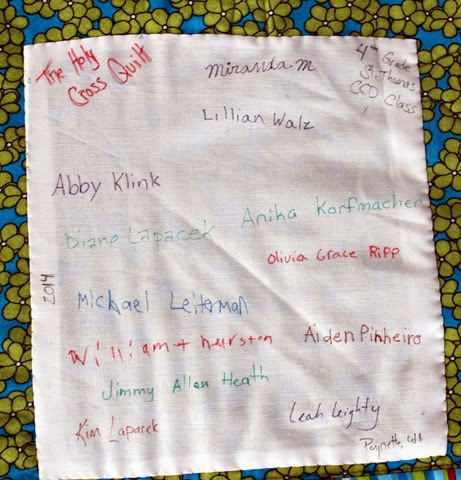 The Holy
Cross Quilt
Miranda.M
4th Grade
St. Thomas
CCD Class
Lillian Walz
Abby Klink
Anika Korfmacher
Diane Lapacek
Olivia Grace Ripp
2014
Michael Leiterman
William thurston
Aiden Pinheiro
Jimmy Allen Heath
Leah Leighty
Kim Lapacek
Poynette, WI